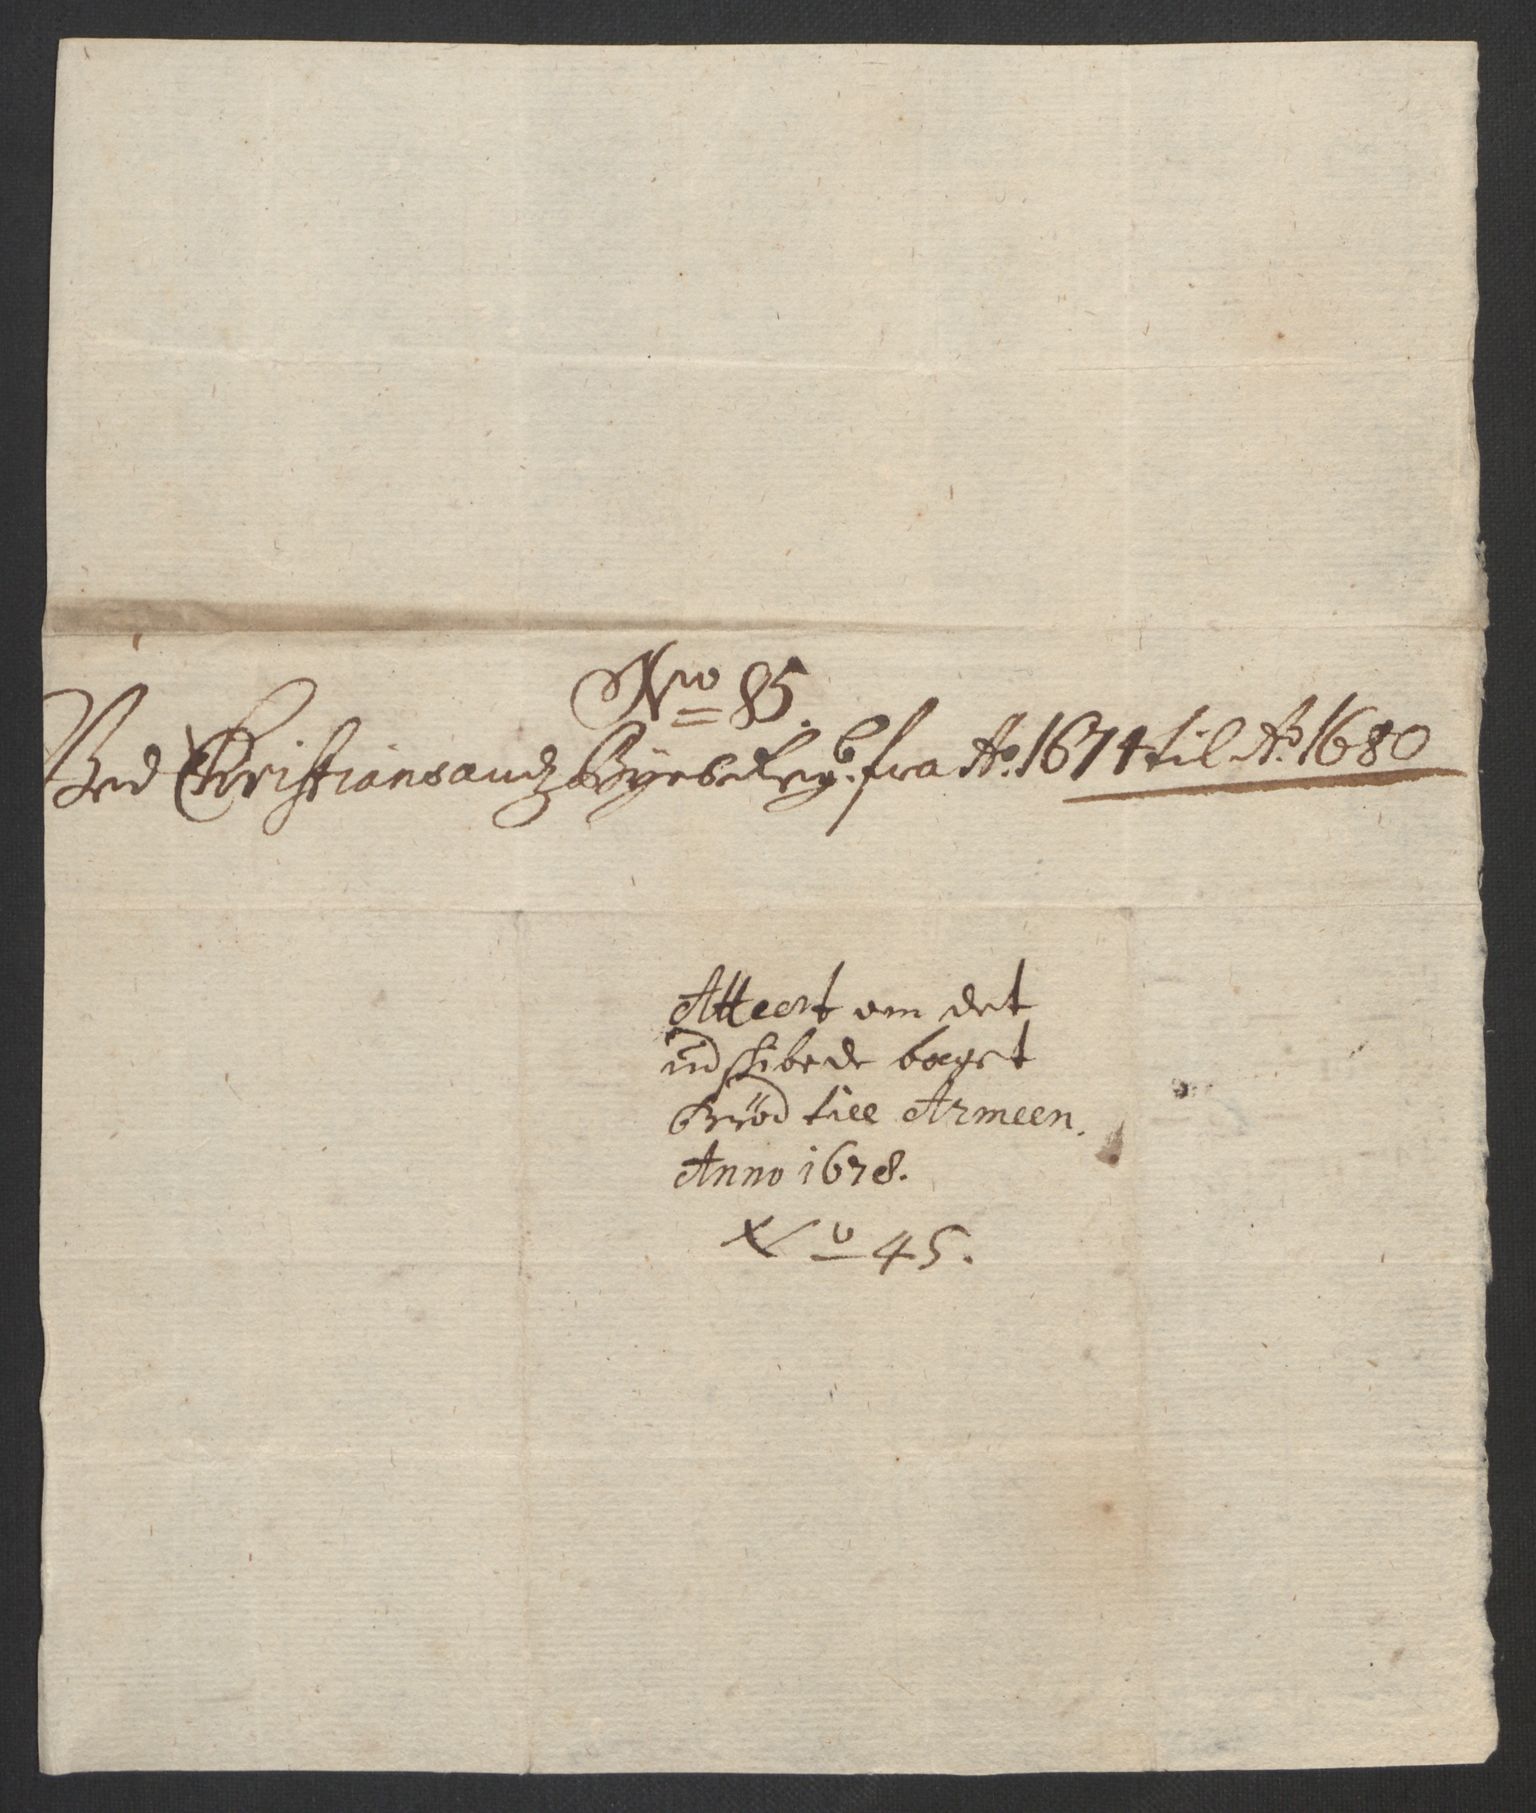 No 85.
Ved Christiansandz Byes Regb. fra Ao. 1674 til Ao. 1680
Attest om det
indskibede baget
Brød till Armeen.
Anno 1678.
No 45.